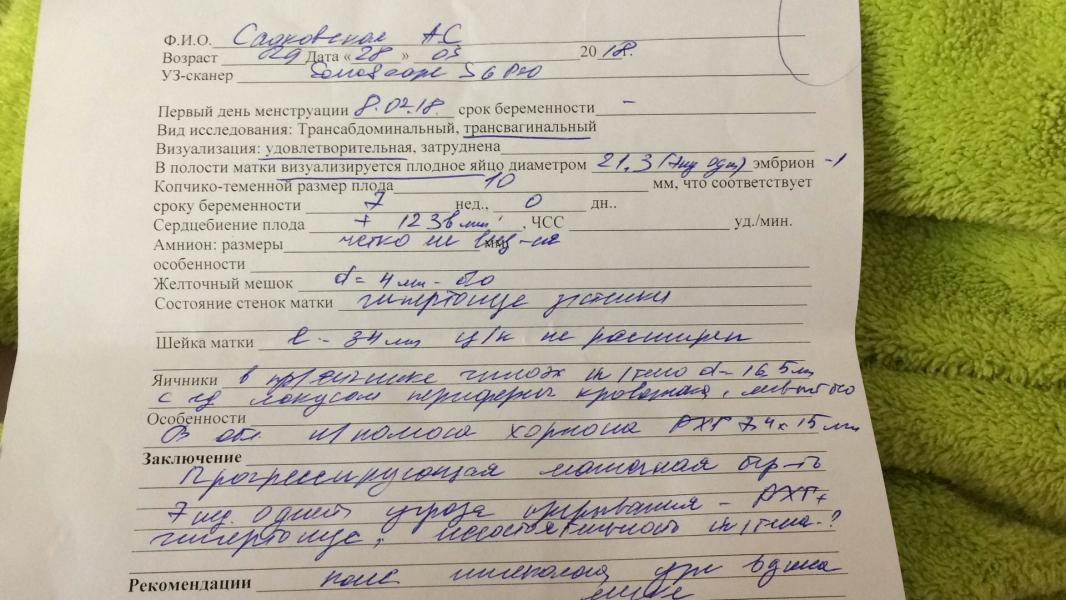 Ф.И.О. Садковская АС
Возраст 29 Дата «28» 03 2018.
УЗ-сканер S6 Pro
Первый день менструации 8.02.18. срок беременности –
Вид исследования: Трансабдоминальный, трансвагинальный
Визуализация: удовлетворительная, затруднена
В полости матки визуализируется плодное яйцо диаметром 21,3 (7нед 0дн) эмбрион -1
Копчико-теменной размер плода 10 мм, что соответствует
сроку беременности 7 нед., 0 дн..
Сердцебиение плода + 123 в мин, ЧСС уд./мин.
Амнион: размеры четко не виз-ся мм
особенности
Желточный мешок d= 4мм - б/о
Состояние стенок матки гипертонус
Шейка матки l - 34мм ц/к не расширен
Яичники в пр/яичнике d-16,5мм
с локусом периферич кровотока, левый б/о
Особенности
В обл. полюса хориона РХГ 7,4х15 мм
Заключение
Прогрессирующая маточная бер-ть
7 нед. 0 дней угроза прерывания – РХГ+
гипертонус, несостоятельность ?
Рекомендации конс гинеколога узи в динамике